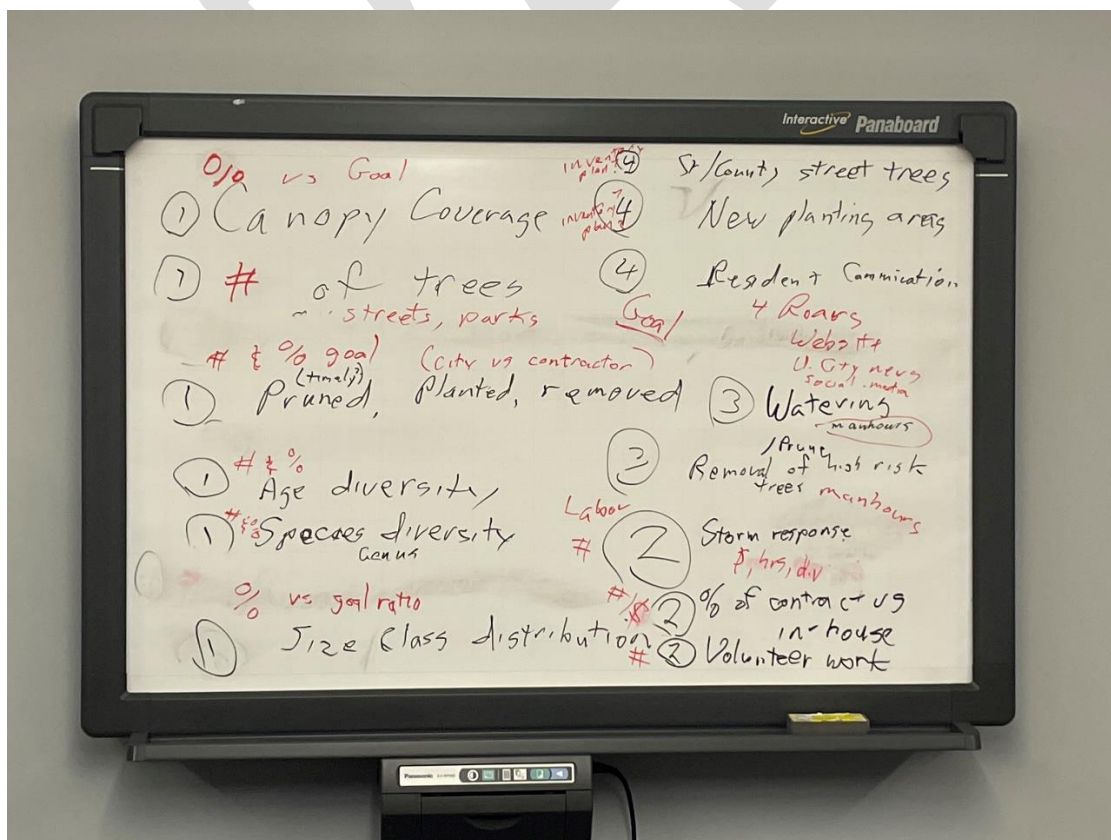 Interactive Panaboard
% vs Goal
① Canopy Coverage
① # of trees
~ streets, parks
# & % goal (city vs contractor)
(timely?)
① Pruned, Planted, removed
# & %
① Age diversity
① # & % Species diversity
Genus
% vs goal ratio
① Size Class distribution
inventory plan? ④ St/County street trees
inventory plan? ④ New planting areas
④ Resident Cammication
Goal 4 Roars
Website
U. City news
social media
③ Watering
manhours
/Prune
③ Removal of high risk
trees manhours
Labor
# ② Storm response
$, hrs, div
#/$ ② % of contract vs
in-house
# ② Volunteer work
Panasonic